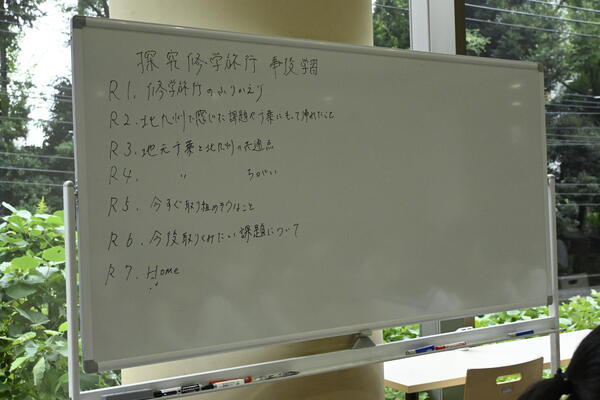 探究修学旅行 事後学習
R1. 修学旅行のふりかえり
R2. 北九州で感じた課題や千葉にもって帰れたこと
R3. 地元千葉と北九州の共通点
R4. 〃 ちがい
R5. 今すぐ取り組めそうなこと
R6. 今後取りくみたい課題について
R7. Home